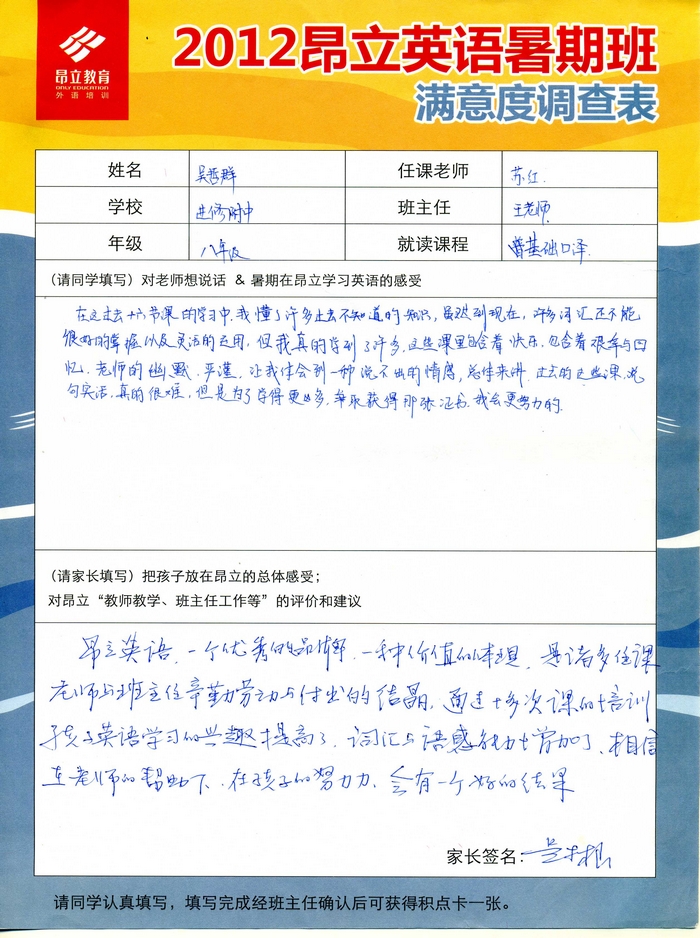 昂立教育
ONLY EDUCATION
外语培训
2012昂立英语暑期班
满意度调查表
姓名 吴哲群 任课老师 苏红.
学校 进修附中 班主任 王老师
年级 八年级 就读课程 暑基础口译.
(请同学填写) 对老师想说话 & 暑期在昂立学习英语的感受
在过去十六节课的学习中,我懂了许多过去不知道的知识,虽然到现在,许多词汇还不能
很好的掌握以及灵活的运用,但我真的学到了许多.这些课里包含着快乐,包含着艰辛与回
忆.老师的幽默.严谨.让我体会到一种说不出的情感,总体来讲.过去的这些课,说
句实话,真的很难,但是为了学得更多,争取获得那张证书.我会更努力的.
(请家长填写) 把孩子放在昂立的总体感受;
对昂立“教师教学、班主任工作等”的评价和建议
昂立英语,一个优秀的品牌,一种价值的体现,是诸多任课
老师与班主任辛勤劳动与付出的结晶,通过十多次课的培训
孩子英语学习的兴趣提高了,词汇与语感能力增加了、相信
在老师的帮助下、在孩子的努力力、会有一个好的结果
家长签名:
请同学认真填写,填写完成经班主任确认后可获得积点卡一张。